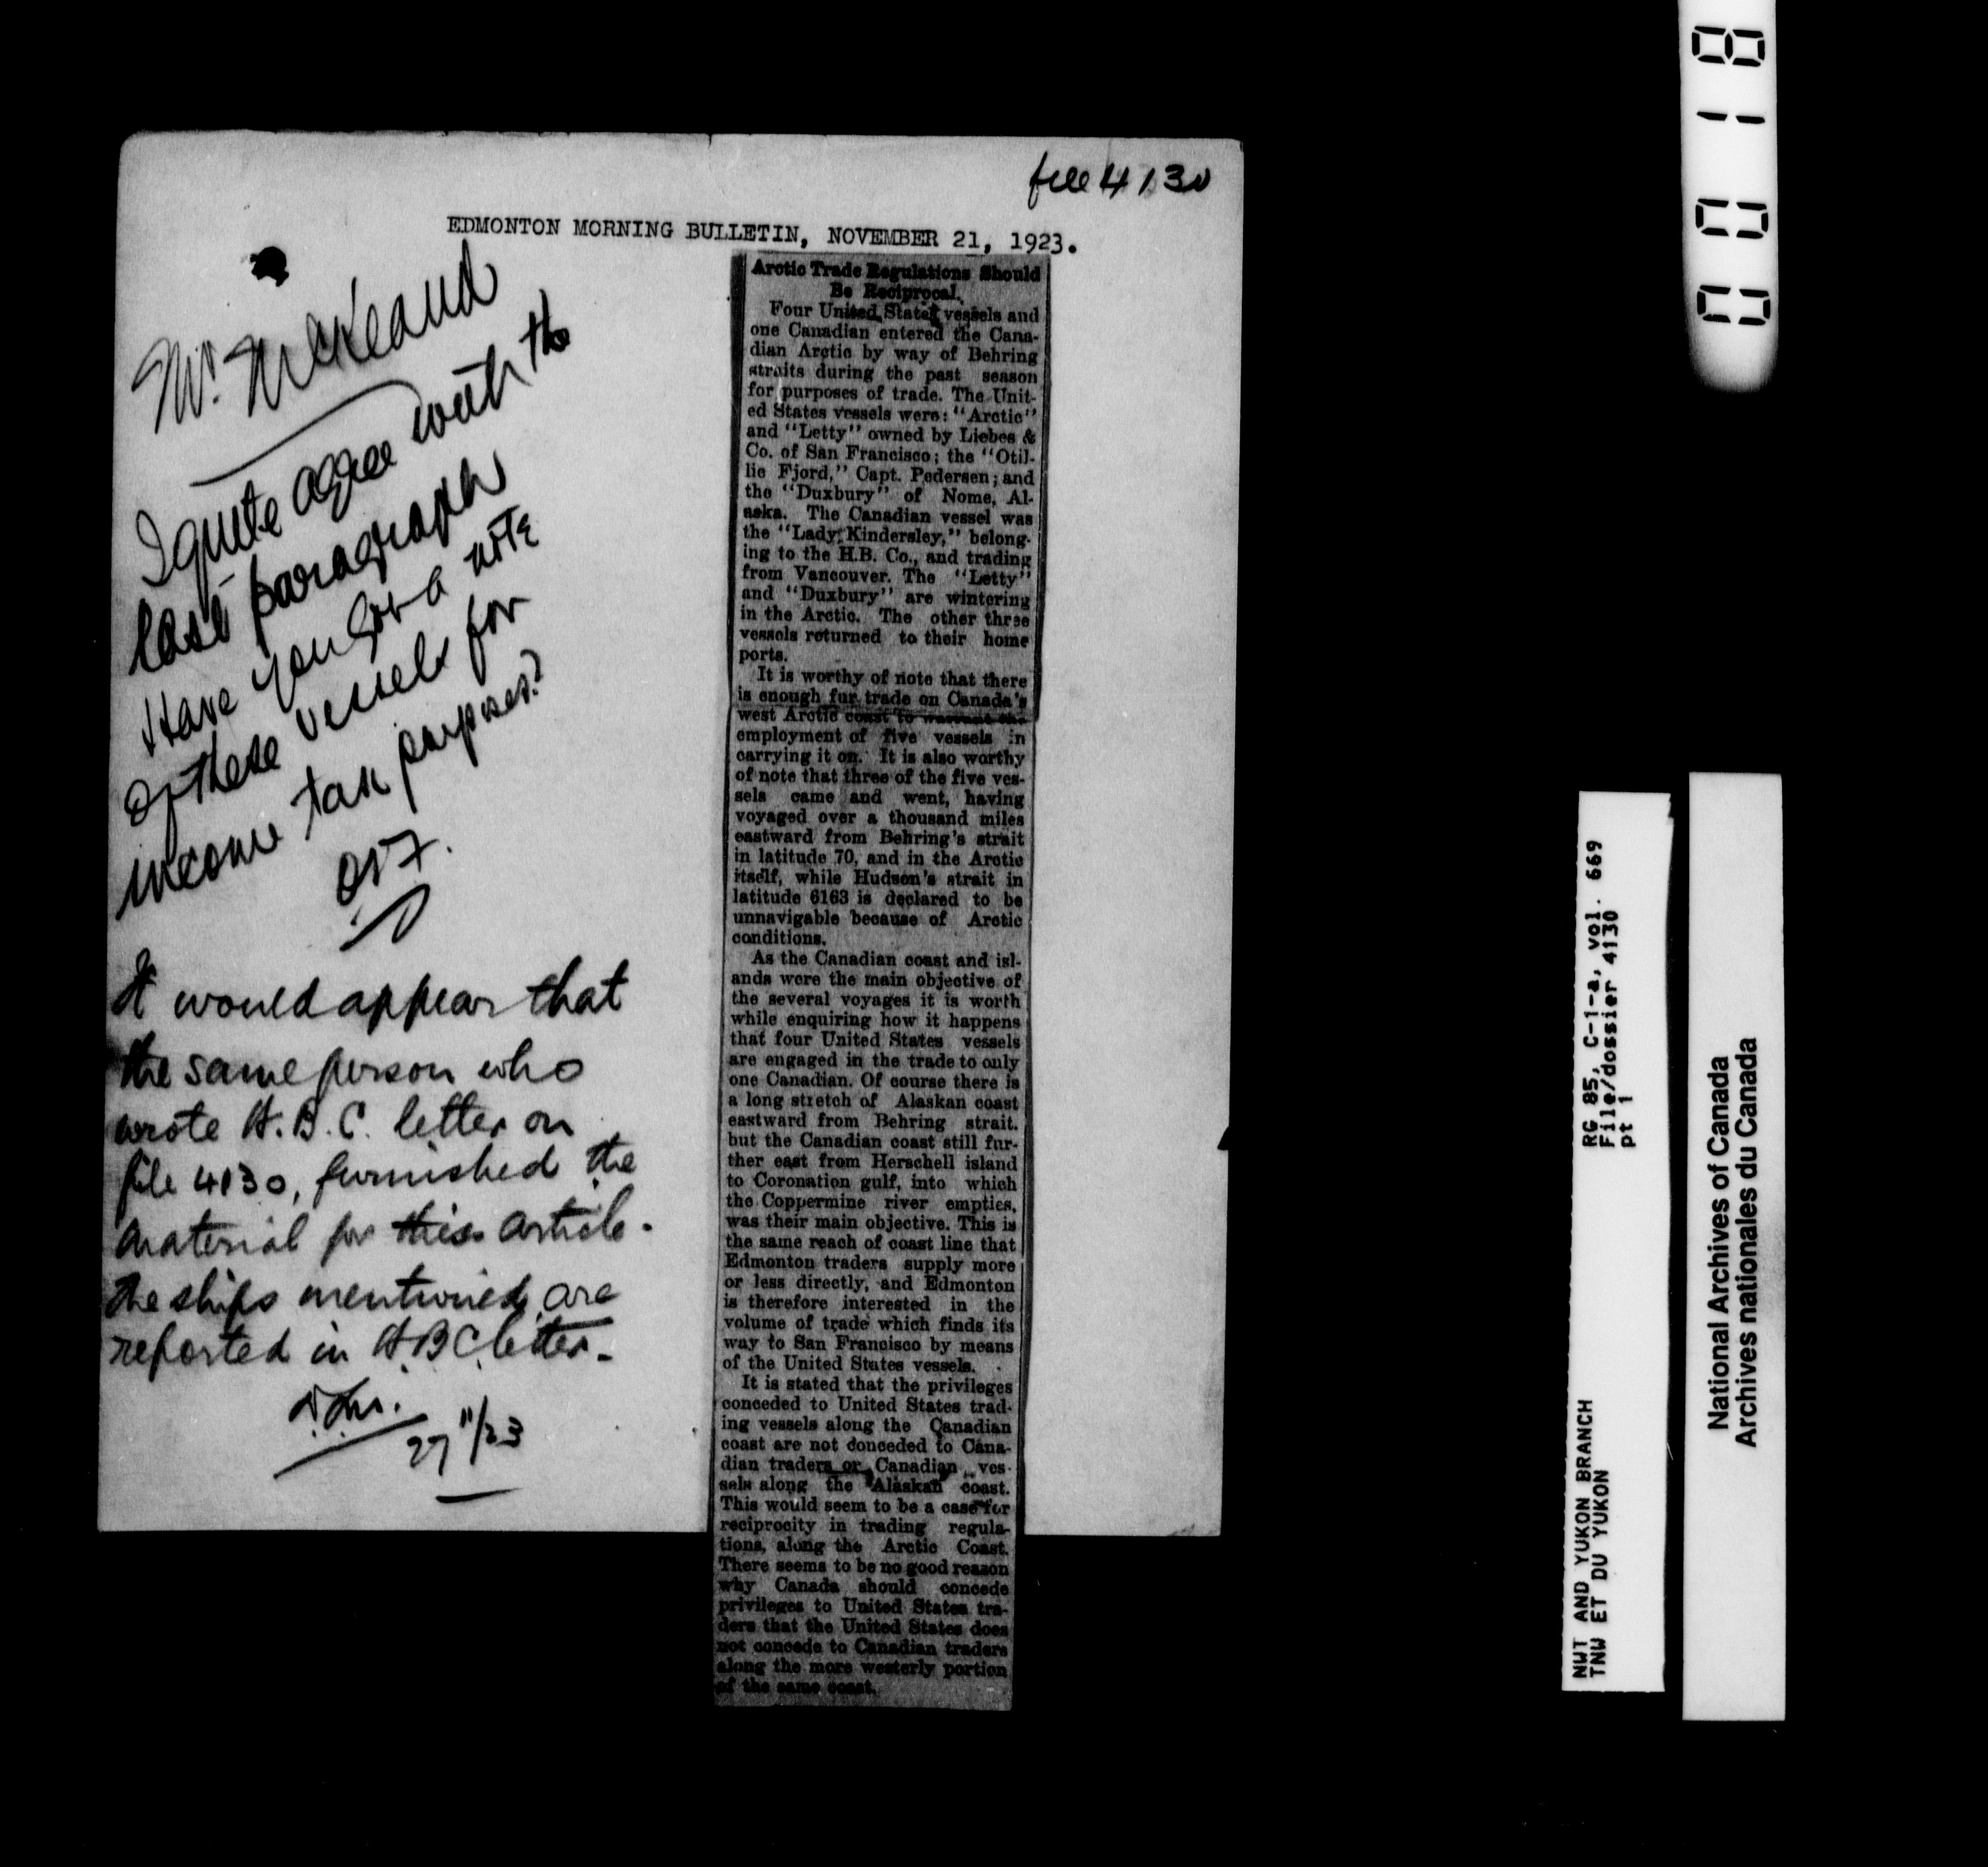 file 4130
EDMONTON MORNING BULLETIN, NOVEMBER 21, 1923.
Mr. McKeand
I quite agree with the
last paragraph
Have you got a note
of these vessels for
income tax purposes?
OSF.
It would appear that
the same person who
wrote H.B.C. letter on
file 4130, furnished the
material for this article.
The ships mentioned are
reported in HBC letter.
27 11/23
Arctic Trade Regulations Should
Be Reciprocal.
Four United States vessels and
one Canadian entered the Cana-
dian Arctic by way of Behring
straits during the past season
for purposes of trade. The Unit-
ed States vessels were: "Arctic"
and "Letty" owned by Liebes &
Co. of San Francisco; the "Otil-
lie Fjord," Capt. Pedersen; and
the "Duxbury" of Nome, Al-
aska. The Canadian vessel was
the "Lady Kindersley," belong-
ing to the H.B. Co., and trading
from Vancouver. The "Letty"
and "Duxbury" are wintering
in the Arctic. The other three
vessels returned to their home
ports.
It is worthy of note that there
is enough fur trade on Canada's
west Arctic coast to warrant the
employment of five vessels in
carrying it on. It is also worthy
of note that three of the five ves-
sels came and went, having
voyaged over a thousand miles
eastward from Behring's strait
in latitude 70, and in the Arctic
itself, while Hudson's strait in
latitude 6163 is declared to be
unnavigable because of Arctic
conditions.
As the Canadian coast and isl-
ands were the main objective of
the several voyages it is worth
while enquiring how it happens
that four United States vessels
are engaged in the trade to only
one Canadian. Of course there is
a long stretch of Alaskan coast
eastward from Behring strait,
but the Canadian coast still fur-
ther east from Herschell island
to Coronation gulf, into which
the Coppermine river empties,
was their main objective. This is
the same reach of coast line that
Edmonton traders supply more
or less directly, and Edmonton
is therefore interested in the
volume of trade which finds its
way to San Francisco by means
of the United States vessels.
It is stated that the privileges
conceded to United States trad-
ing vessels along the Canadian
coast are not conceded to Cana-
dian traders or Canadian ves-
sels along the Alaskan coast.
This would seem to be a case for
reciprocity in trading regula-
tions, along the Arctic Coast.
There seems to be no good reason
why Canada should concede
privileges to United States tra-
ders that the United States does
not concede to Canadian traders
along the more westerly portion
of the same coast.
RG 85, C-1-a, vol. 669
File/dossier 4130
pt 1
NWT AND YUKON BRANCH
TNW ET DU YUKON
National Archives of Canada
Archives nationales du Canada
00118